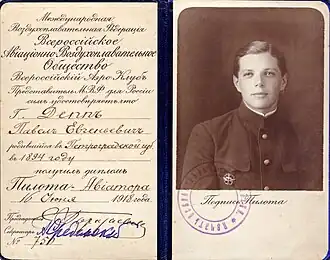 Международная
Воздухоплавательная Федерація
Всероссійское
Авіаціонно-Воздухоплавательное
Общество
Всероссійскій Аэро Клубъ
Представитель М.В.Ф. для Россіи
симъ удостовѣряетъ что
Г. Деппъ
Павелъ Евгеніевичъ
родившійся въ Петроградской губ
въ 1894 году
получилъ дипломъ
Пилота-Авіатора
16 Іюня 1918 года.
Предсѣдатель
Секретарь
№ 750
Подпись Пилота